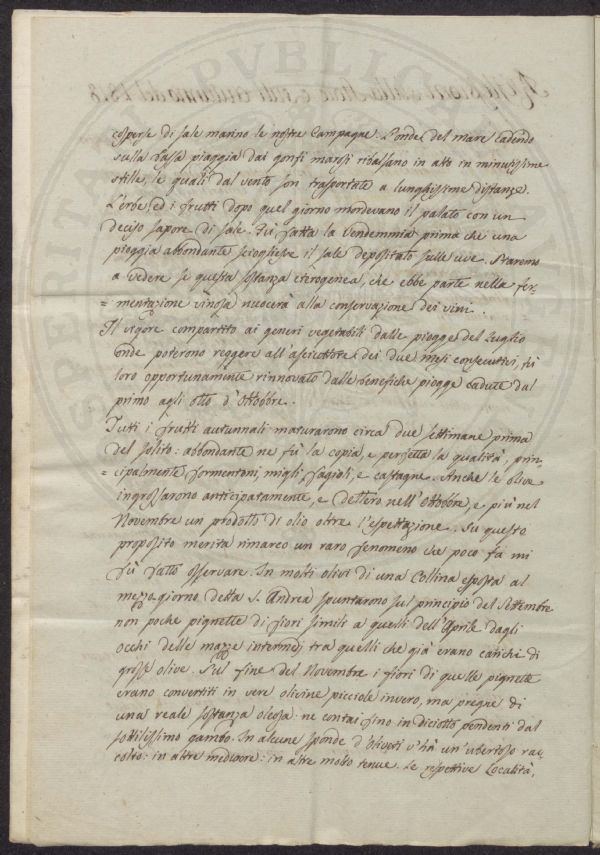 cosperse di sale marino le nostre Campagne. L'onde del mare cadendo
sulla bassa piaggia dai gonfi marosi ribalsano in alto in minutissime
stille, le quali dal vento son trasportate a lunghissime distanze.
L'erbe ed i frutti dopo quel giorno mordevano il palato con un
deciso sapore di sale. Fù fatta la vendemmia prima che una
pioggia abbondante sciogliesse il sale depositato sulle uve. Staremo
a vedere se questa sostanza eterogenea, che ebbe parte nella fer-
= mentazione vinosa nuocerà alla conservazione dei vini.
Il vigore compartito ai generi vegetabili dalle piogge del Luglio
onde poterono reggere all'asciuttore dei due mesi consecutivi, fù
loro opportunamente rinnovato dalle benefiche piogge cadute dal
primo agli otto d'Ottobre.
Tutti i frutti autunnali maturarono circa due settimane prima
del solito: abbondante ne fù la copia, e perfetta la qualità, prin-
= cipalmente formentoni, migli, fagioli, e castagne. Anche le olive
ingrossarono anticipatamente, e dettero nell'Ottobre, e più nel
Novembre un prodotto di olio oltre l'espettazione. Su questo
proposito merita rimarco un raro fenomeno che poco fà mi
fù fatto osservare. In molti olivi di una Collina esposta al
mezzogiorno detta S. Andrea spuntarono sul principio del Settembre
non poche pignette di fiori simili a quelli dell'Aprile dagli
occhi delle mazze intermedj tra quelli che già erano carichi di
grosse olive. Sul fine del Novembre i fiori di quelle pignette
erano convertiti in vere olivine picciole invero, ma pregne di
una reale sostanza oleosa: ne contai fino in diciotto pendenti dal
sottilissimo gambo. In alcune sponde d'oliveti v'hà un'ubertoso rac-
colto: in altre mediocre: in altre molto tenue. Le respettive Località,